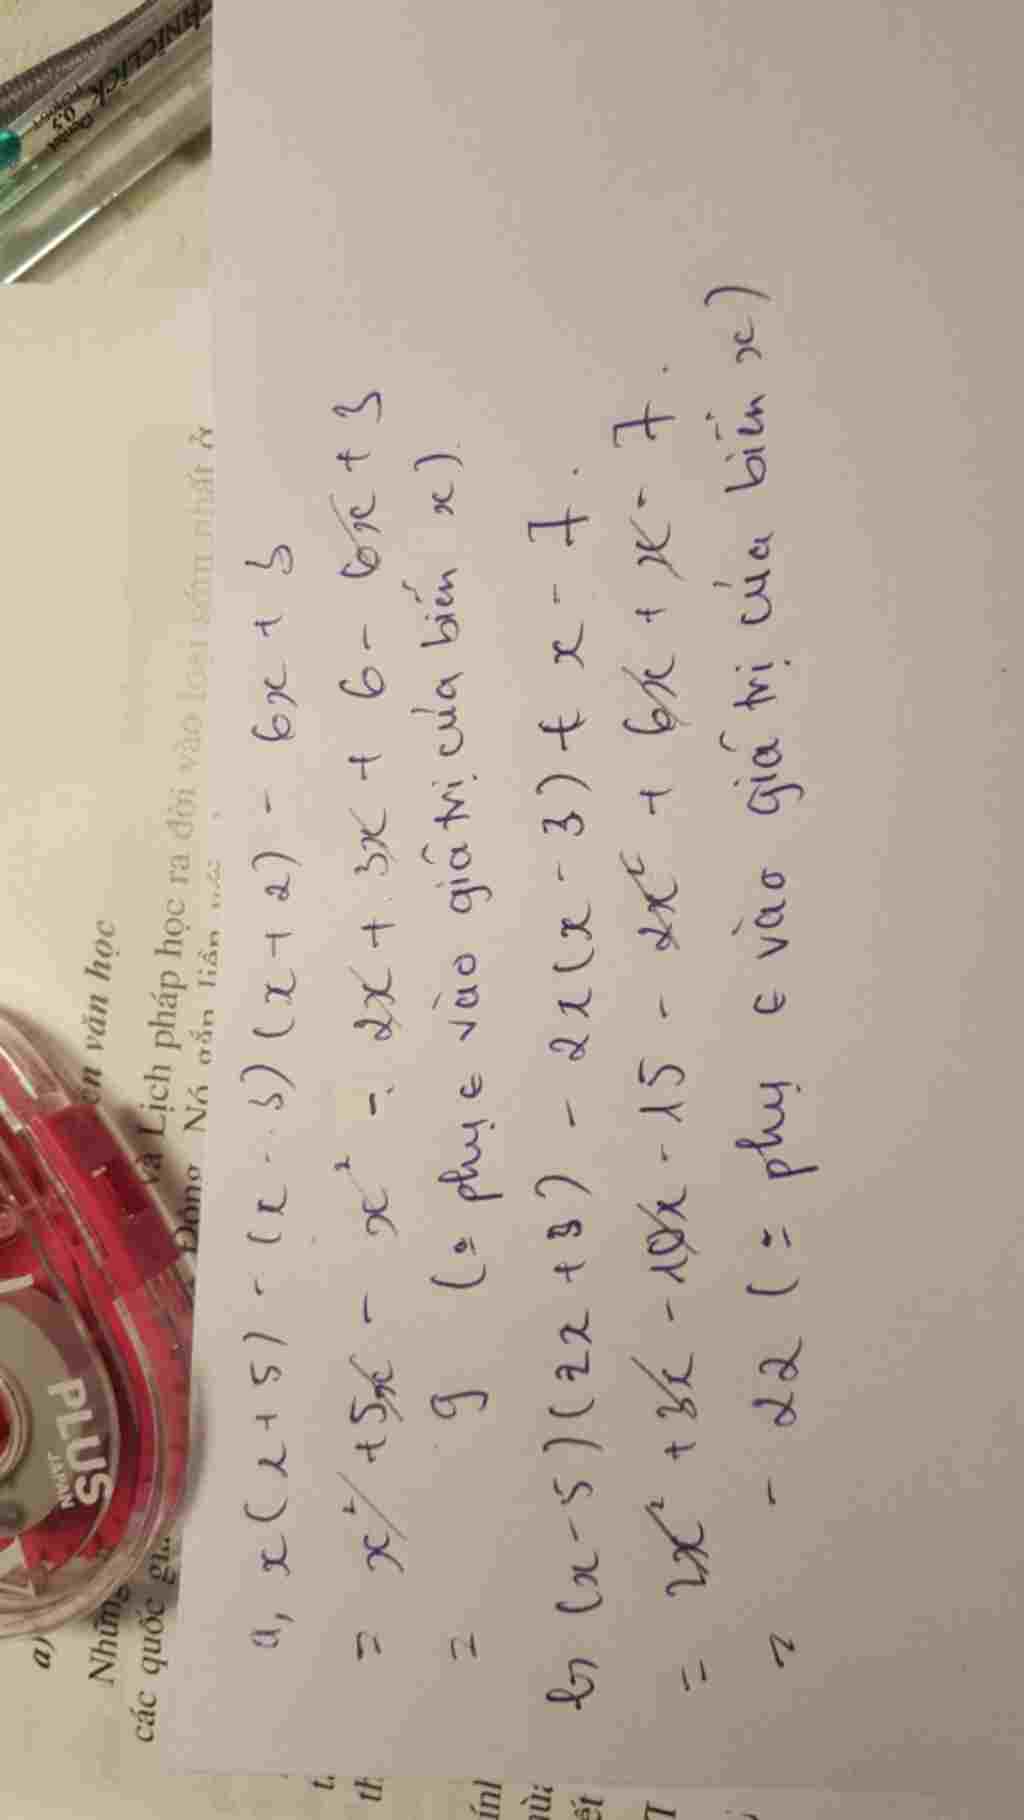 a, x(x+5) - (x-3)(x+2) - 6x+3
= x² + 5x - x² - 2x + 3x + 6 - 6x + 3
= 9 (= phụ ∈ vào giá trị của biến x)
b, (x-5)(2x+3) - 2x(x-3) + x - 7.
= 2x² + 3x - 10x - 15 - 2x² + 6x + x - 7.
= - 22 (= phụ ∈ vào giá trị của biến x)
PLUS
JAPAN
TECHNICLICK
Pentel
0.5
văn học
và Lịch pháp học ra đời vào loại sớm nhất ở
Đông. Nó gắn liền
a)
Những
các quốc gi